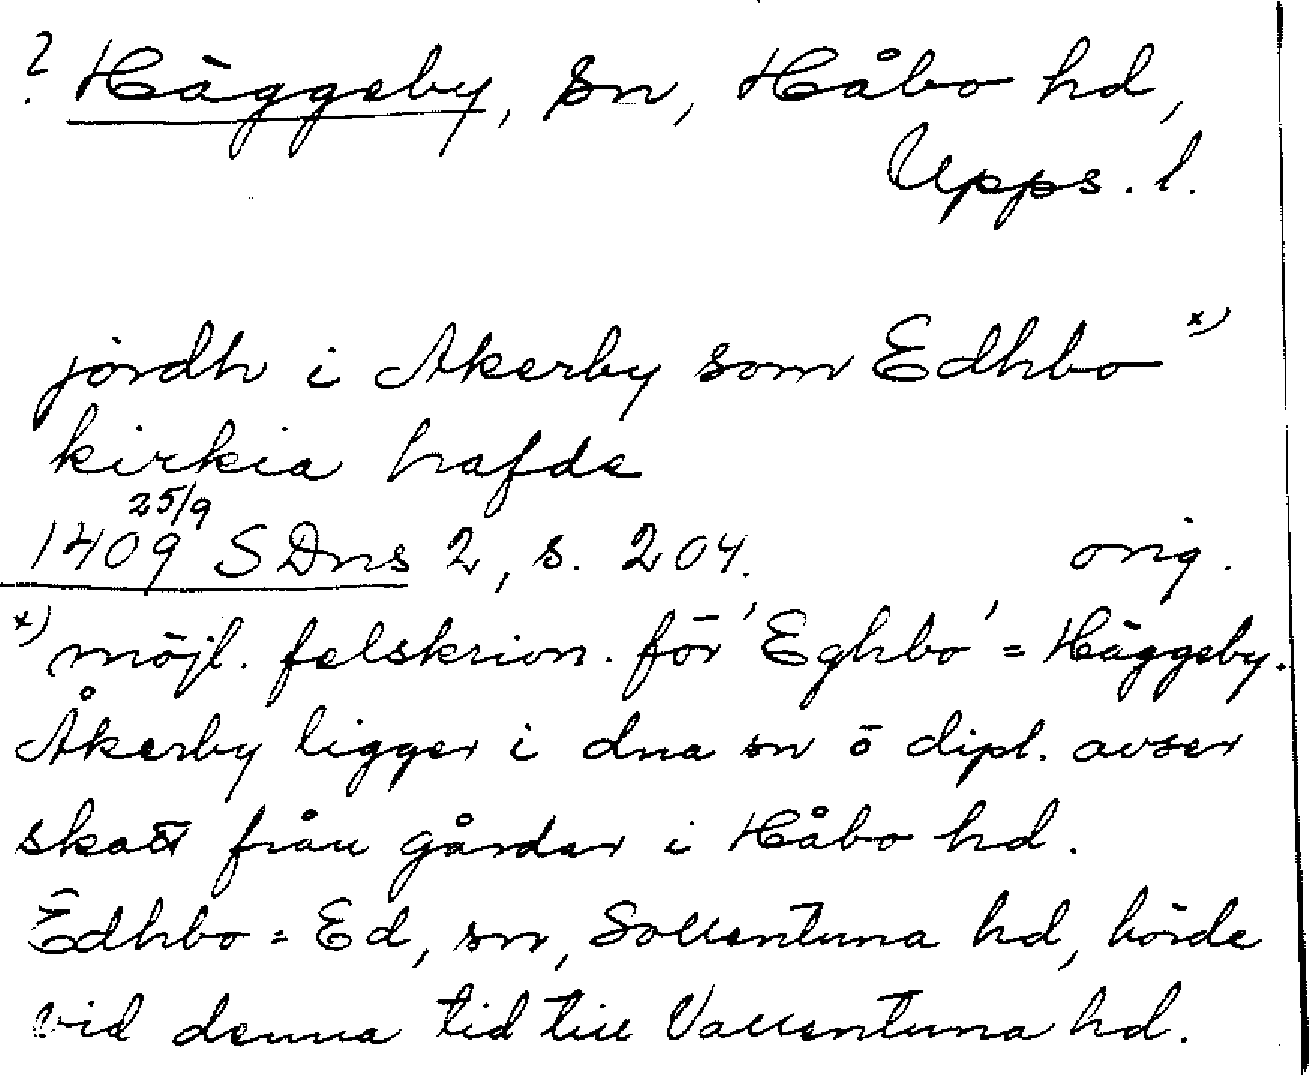 ? Häggeby, sn, Håbo hd,
Upps. l.
jördh i Akerby som Edhbo x)
kirkia hafde
25/9
1409 SDns 2, s. 204. orig.
x) möjl. felskrivn. för 'Eghbo' = Häggeby.
Åkerby ligger i dna sn o dipl. avser
skatt från gårdar i Håbo hd.
Edhbo = Ed, sn, Sollentuna hd, hörde
vid denna tid till Vallentuna hd.